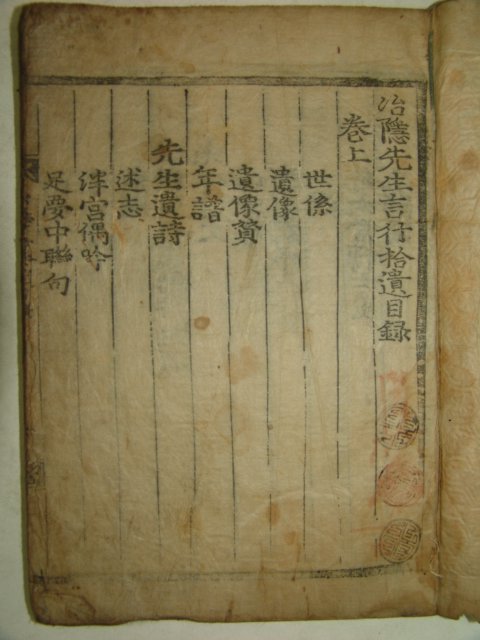 冶隱先生言行拾遺目録
卷上
世係
遺像
遺像贊
年譜
先生遺詩
述志
泮宮偶吟
足夢中聯句